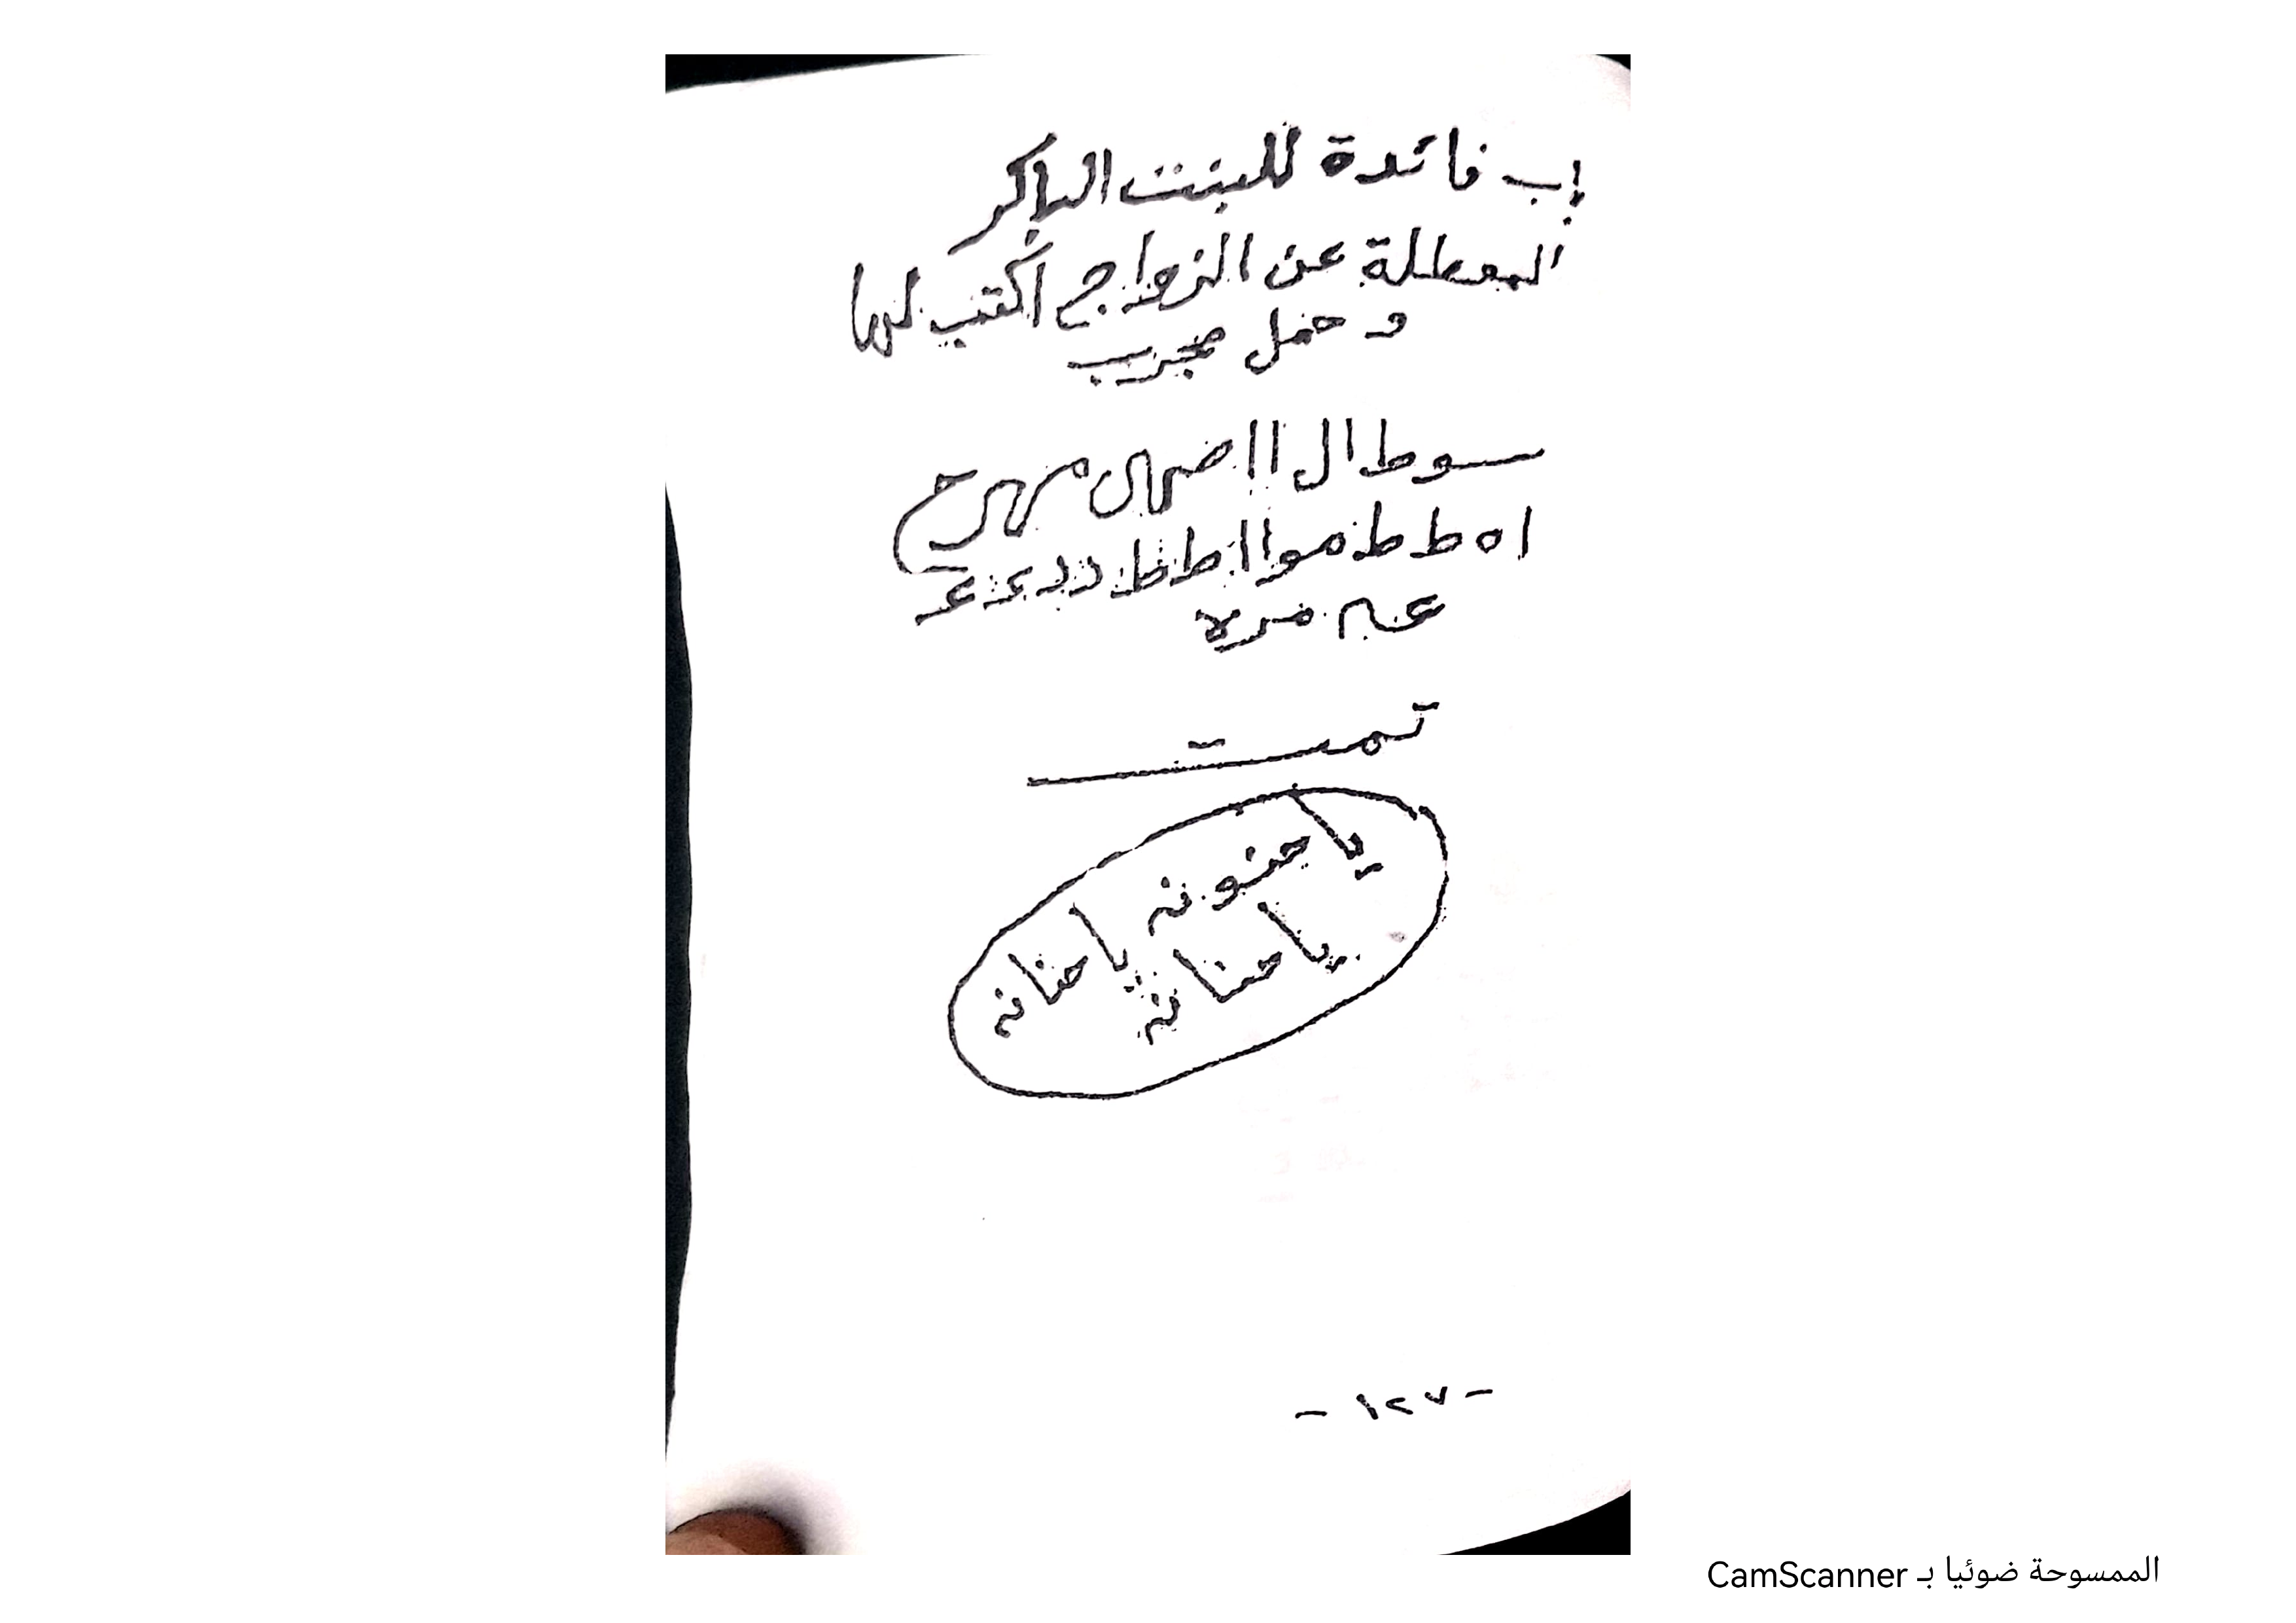 باب فائدة للبنت الباكر
المعطلة عن الزواج اكتب لها
و حمل مجرب
سوط ال اا
اه ط ط موا اط ط
تمت
يا حنونه يا حنانه
يا حنانه
- ١٢٧ -
الممسوحة ضوئيا بـ CamScanner